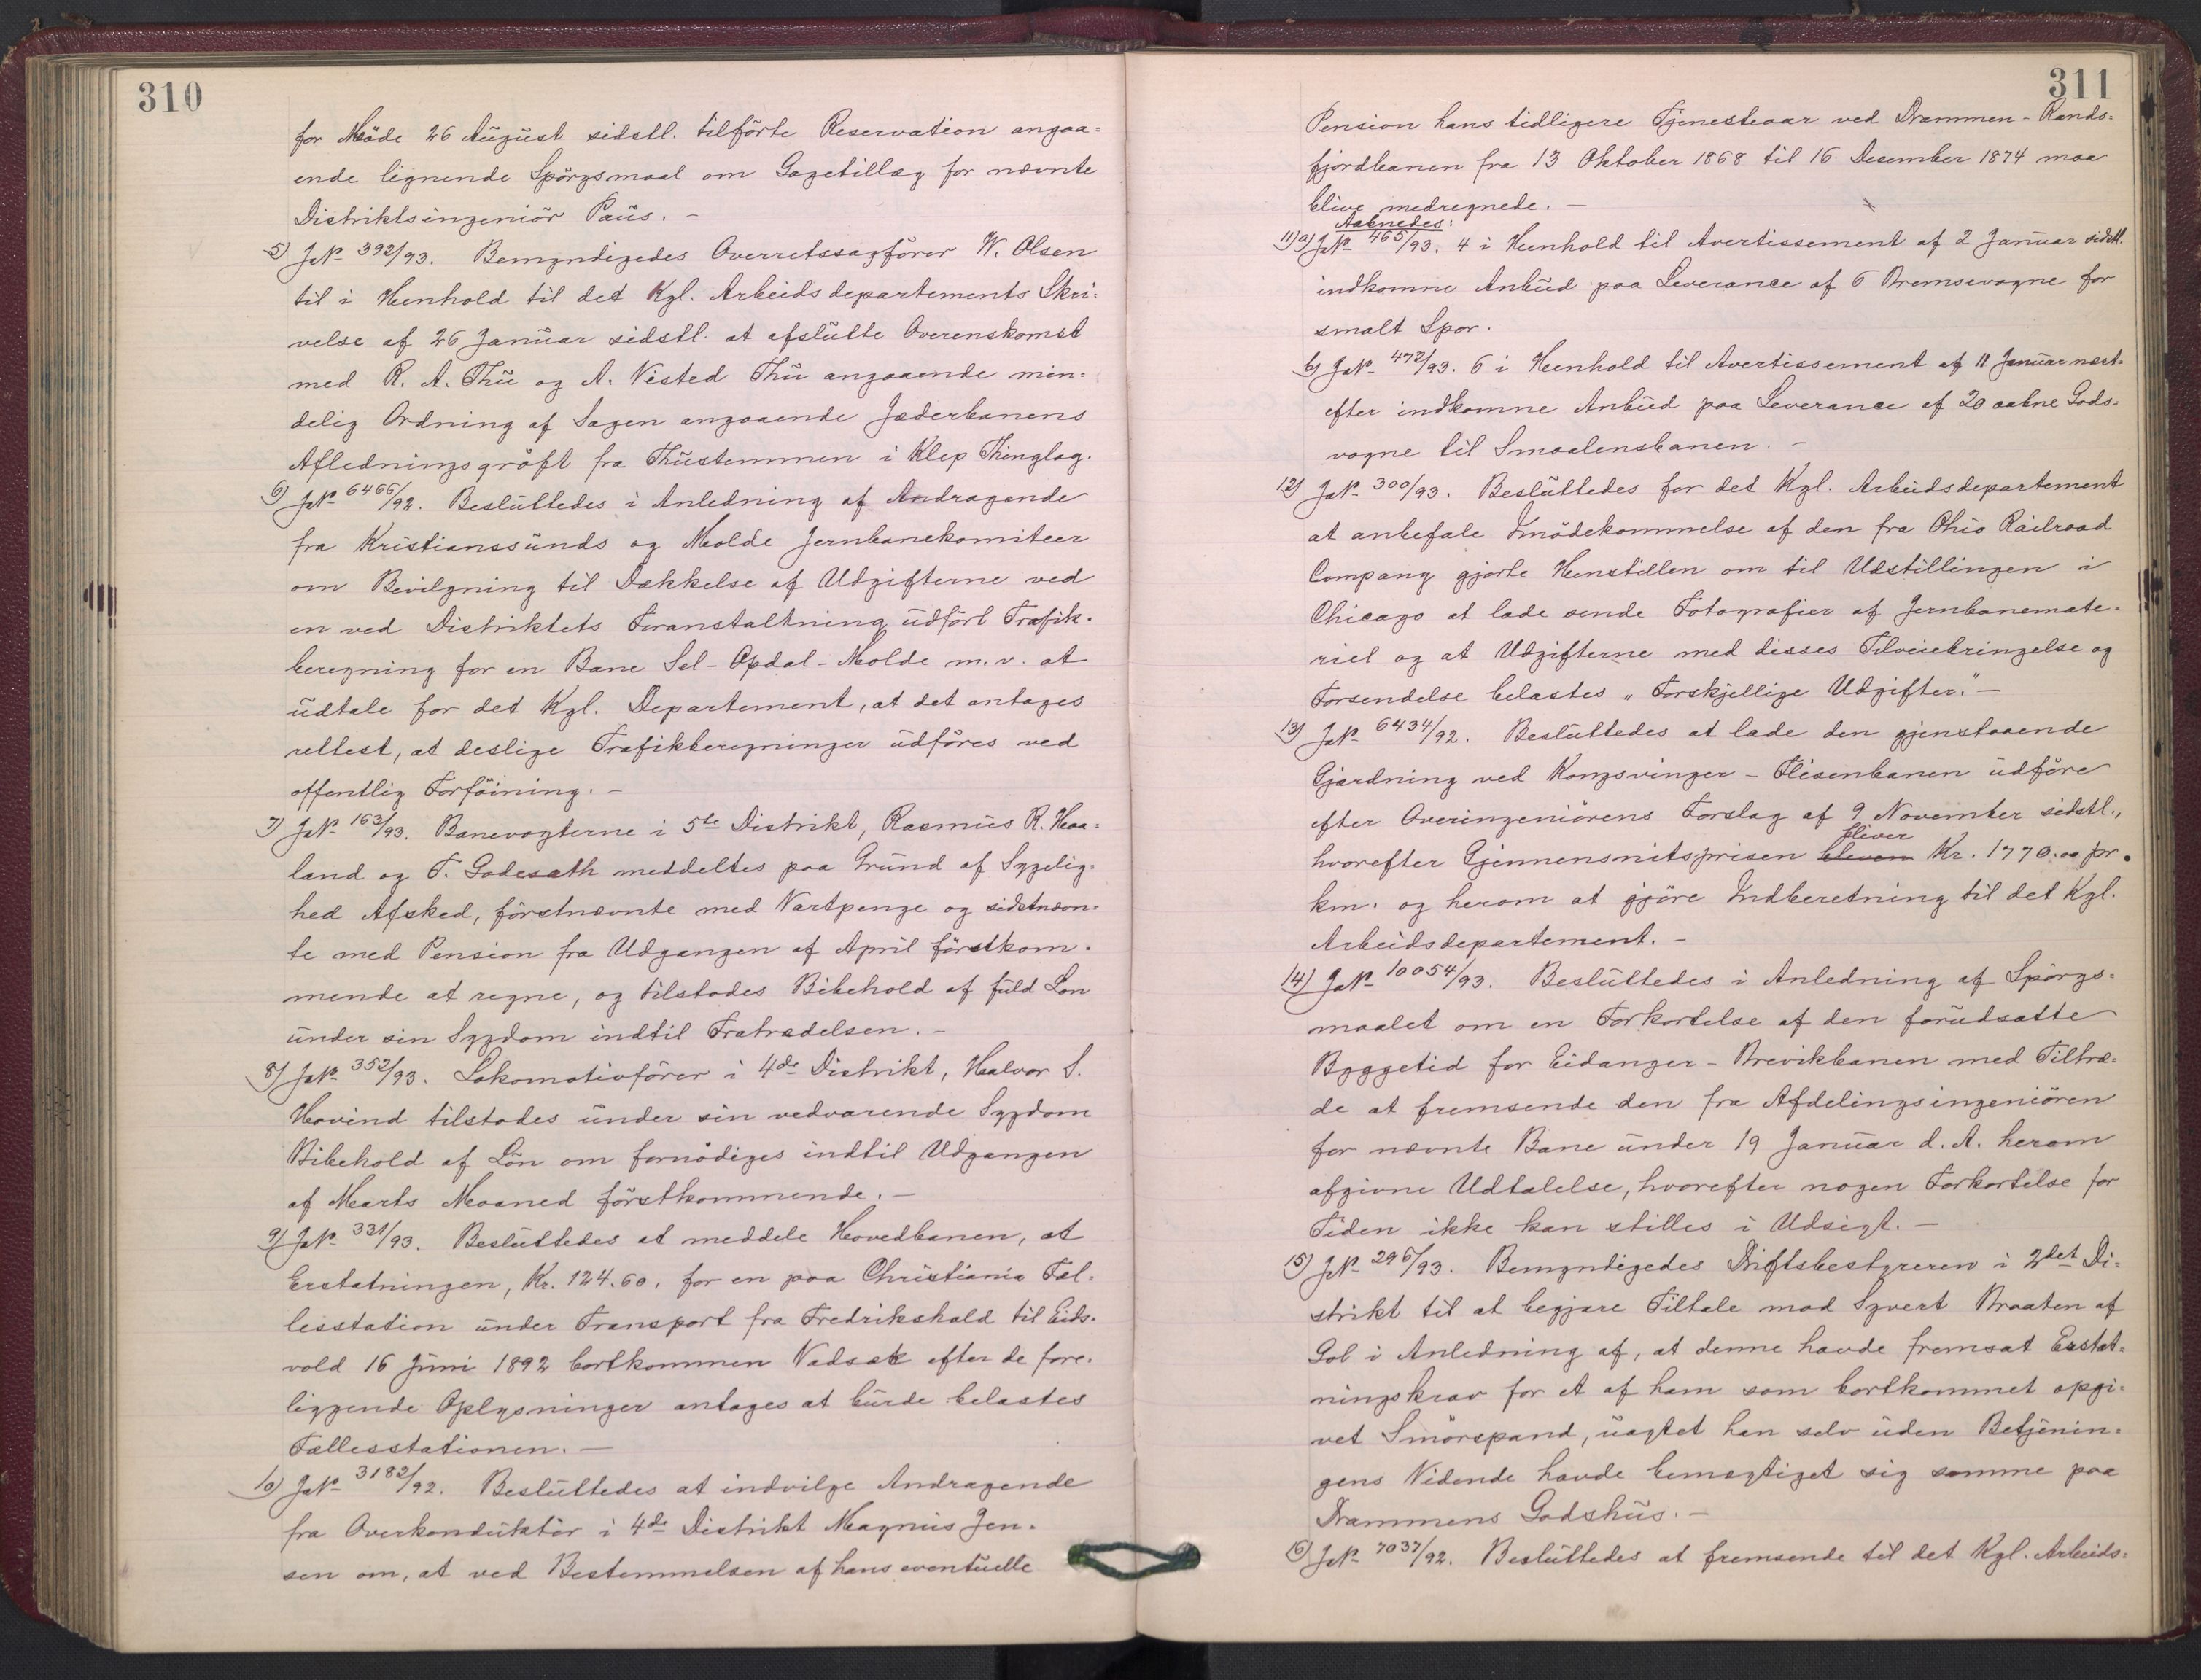 310
for Möde 26 August sidstl. tilförte Reservation angaa=
ende lignende Spörgsmaal om Gagetillæg for nævnte
Distriktsingeniör Paus. -
5) JN 392/93. Bemyndigedes Overretssagförer W. Olsen
til i Henhold til det Kgl. Arbeidsdepartements Skri=
velse af 26 Januar sidstl. at afslutte Overenskomst
med R. A. Thu og A. Nisted Thu angaaende min=
delig Ordning af Sagen angaaende Jæderbanens
Afledningsgröft fra Thustemmen i Klep Thinglag.
6) JN 6466/92. Besluttedes i Anledning af Andragende
fra Kristianssunds og Molde Jernbanekomiteer
om Bevilgning til Dækkelse af Udgifterne ved
en ved Distriktets Foranstaltning udfört Trafik=
beregning for en Bane Sel-Opdal-Molde m.v. at
udtale for det Kgl. Departement, at det antages
rettest, at deslige Trafikberegninger udföres ved
offentlig Forföining. -
7) JN 163/93. Banevogterne i 5te Distrikt, Rasmus R. Haa=
land og T. Godesæth meddeltes paa Grund af Sygelig=
hed Afsked, förstnævnte med Vartpenge og sidstnævn=
te med Pension fra Udgangen af April förstkom=
mende at regne, og tilstodes Bibehold af fuld Løn
under sin Sygdom indtil Fratrædelsen. -
8) JN 352/93. Lokomotivförer i 4de Distrikt, Halvor S.
Hovind tilstodes under sin vedvarende Sygdom
Bibehold af Lön om fornödiges indtil Udgangen
af Marts Maaned förstkommende. -
9) JN 331/93. Besluttedes at meddele Hovedbanen, at
Erstatningen, Kr. 124.60, for en paa Christiania Fæl=
lesstation under Transport fra Fredrikshald til Eids=
vold 16 Juni 1892 bortkommen Vadsæk efter de fore=
liggende Oplysninger antages at burde belastes
Fællesstationen. -
10) JN 3182/92. Besluttedes at indvilge Andragende
fra Overkonduktör i 4de Distrikt Magnus Jen=
sen om, at ved Bestemmelsen af hans eventuelle
311
Pension hans tidligere Tjenesteaar ved Drammen-Rands=
fjordbanen fra 13 Oktober 1868 til 16 Desember 1874 maa
blive medregnede. -
Aabnedes:
11) a) JN 465/93. 4 i Henhold til Avertissement af 2 Januar sidstl.
indkomne Anbud paa Leverance af 6 Bremsevogne for
smalt Spor.
b) JN 472/93. 6 i Henhold til Avertissement af 11 Januar næst=
efter indkomne Anbud paa Leverance af 20 aabne Gods=
vogne til Smaalensbanen. -
12) JN 300/93. Besluttedes for det Kgl. Arbeidsdepartement
at anbefale Imödekommelse af den fra Ohio Railroad
Company gjorte Henstillen om til Udstillingen i
Chicago at lade sende Fotografier af Jernbanemate=
riel og at Udgifterne med disses Tilveiebringelse og
Forsendelse belastes „Forskjellige Udgifter." -
13) JN 6434/92. Besluttedes at lade den gjenstaaende
Gjærdning ved Kongsvinger-Flisenbanen udföre
efter Overingeniörens Forslag af 9 November sidstl.,
bliver
hvorefter Gjennemsnitsprisen bleven Kr. 1770.00 pr.
km. og herom at gjöre Indberetning til det Kgl.
Arbeidsdepartement. -
14) JN 10054/93. Besluttedes i Anledning af Spörgs=
maalet om en Forkortelse af den forudsatte
Byggetid for Eidanger-Brevikbanen med Tiltræ=
de at fremsende den fra Afdelingsingeniören
for nævnte Bane under 19 Januar d. A. herom
afgivne Udtalelse, hvorefter nogen Forkortelse for
Tiden ikke kan stilles i Udsigt. -
15) JN 296/93. Bemyndigedes Driftsbestyreren i 2det Di=
strikt til at begjære Tiltale mod Syvert Braaten af
Gol i Anledning af, at denne havde fremsat Erstat=
ningskrav for et af ham som bortkommet opgi=
vet Smörspand, uagtet han selv uden Betjenin=
gens Vidende havde bemægtiget sig samme paa
Drammens Godshus. -
16) JN 7037/92. Besluttedes at fremsende til det Kgl. Arbeids=